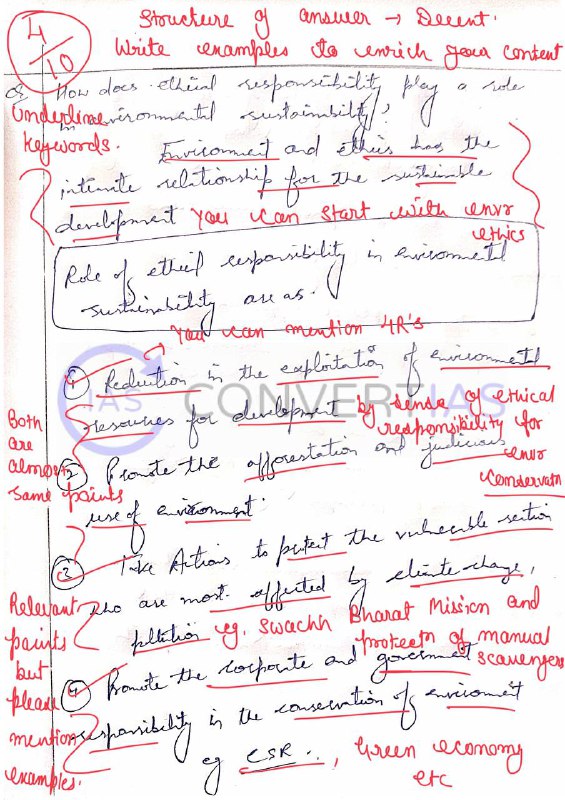 4/10
Structure of answer → Decent.
Write examples to enrich your content
Q. How does ethical responsibility play a role
in environmental sustainibility?
Underline
keywords.
Environment and ethics has the
intimate relationship for the sustainable
development
You can start with envr
ethics
Role of ethical responsibility in environmental
sustainability are as.
→ You can mention 4R's
① Reduction in the exploitation of environmental
resources for development
by sense of ethical
responsibility for
envr
conservatn
Both
are
almost
same points
② Promote the afforestation and judicious
use of environment.
③ Take Actions to protect the vulnerable section
who are most affected by climate change,
pllution
eg. Swachh Bharat Mission and
protectn of manual
scavengers
Relevant
points
but
please
mention
examples.
④ Promote the corporate and government
responsibility in the conservation of enviroment
eg CSR.
, Green economy
etc
IAS CONVERTIAS